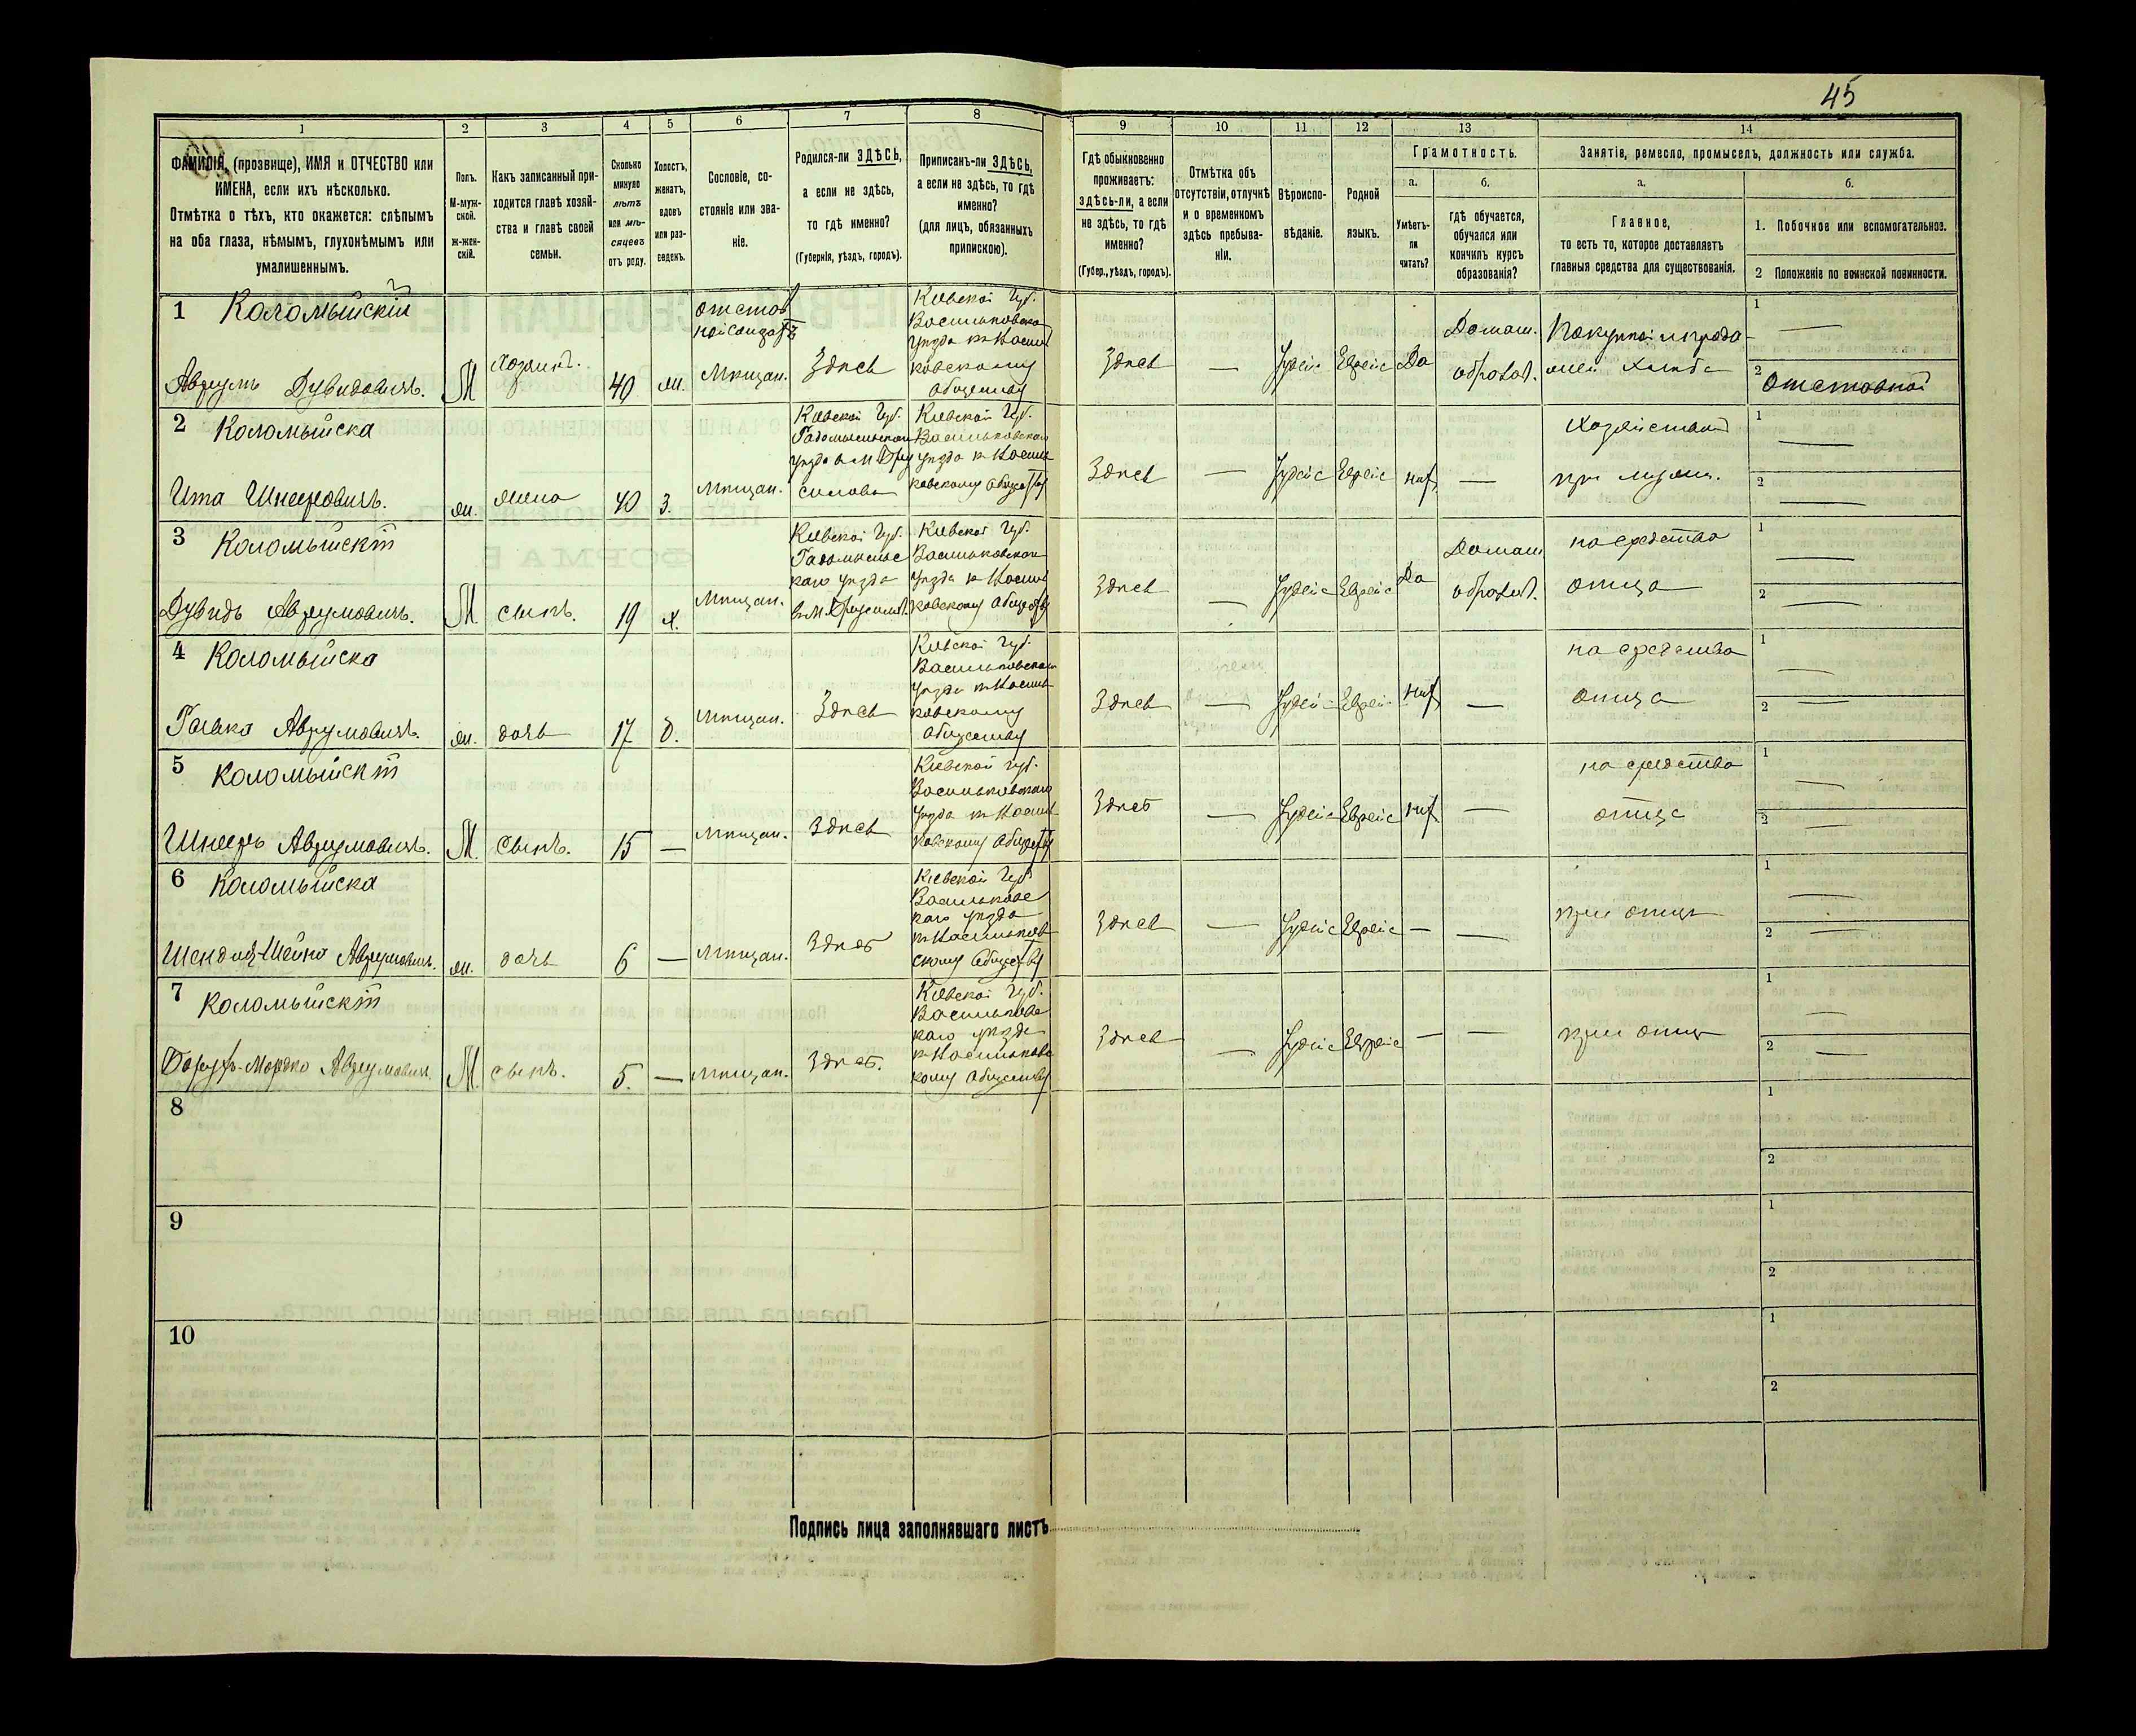 45
1
2
3
4
5
6
7
8
9
10
11
12
13
14
ФАМИЛІЯ, (прозвище), ИМЯ и ОТЧЕСТВО или
ИМЕНА, если ихъ нѣсколько.
Отмѣтка о тѣхъ, кто окажется: слѣпымъ
на оба глаза, нѣмымъ, глухонѣмымъ или
умалишеннымъ.
Полъ.
М-муж-
ской.
ж-жен-
скій.
Какъ записанный при-
ходится главѣ хозяй-
ства и главѣ своей
семьи.
Сколько
минуло
лѣтъ
или мѣ-
сяцевъ
отъ роду.
Холостъ,
женатъ,
вдовъ
или раз-
веденъ.
Сословіе, со-
стояніе или зва-
ніе.
Родился-ли ЗДѢСЬ,
а если не здѣсь,
то гдѣ именно?
(Губернія, уѣздъ, городъ).
Приписанъ-ли ЗДѢСЬ,
а если не здѣсь, то гдѣ
именно?
(для лицъ, обязанныхъ
припискою).
Гдѣ обыкновенно
проживаетъ:
здѣсь-ли, а если
не здѣсь, то гдѣ
именно?
(Губер., уѣздъ, городъ).
Отмѣтка объ
отсутствіи, отлучкѣ
и о временномъ
здѣсь пребыва-
ніи.
Вѣроиспо-
вѣданіе.
Родной
языкъ.
Грамотность.
а.
Умѣетъ-
ли
читать?
б.
гдѣ обучается,
обучался или
кончилъ курсъ
образованія?
Занятіе, ремесло, промыселъ, должность или служба.
а.
Главное,
то есть то, которое доставляетъ
главныя средства для существованія.
б.
1. Побочное или вспомогательное.
2 Положеніе по воинской повинности.
1 Коломыйскій
Аврумъ Дувидовичъ.
М
Хозяинъ.
40
ж.
Мѣщан.
Здѣсь
Кіевской Губ.
Васильковска
уѣзда къ Василь
ковскому
обществу
Здѣсь
—
Іудейс
Еврейс
Да
Домаш.
образов.
Покупкой и прода-
жей хлеба
1 —
2 Отставной
2 Коломыйска
Ита Шнееровичъ.
ж.
жена
40
З.
Мѣщан.
Кіевской Губ.
Кіевской Губ.
Васильковскаго
Здѣсь
—
Іудейс
Еврейс
нѣт
—
Хозяйством
при мужи.
1 —
2 —
3 Коломыйскій
Дувидъ Аврумовичъ.
М
сынъ.
19
х.
Мѣщан.
Кіевской Губ.
Радомысльс
каго уѣзда
Кіевской Губ.
Васильковскаго
уѣзда к Василь
ковскому обществу
Здѣсь
—
Іудейс
Еврейс
Да
Домаш
образов.
на средства
отца
1 —
2 —
4 Коломыйска
Аврумовичъ.
ж.
дочь
17
д.
Мѣщан.
Здѣсь
Кіевской Губ.
Васильковскаго
уѣзда къ Василь
ковскому
обществу
Здѣсь
—
Іудей
Еврей
нѣт
—
на средства
отца
1 —
2 —
5 Коломыйскій
Шнееръ Аврумовичъ.
М.
Сынъ.
15
—
Мѣщан.
Здѣсь
Кіевской Губ.
Васильковскаго
уѣзда къ Василь
ковскому обществу
Здѣсь
—
Іудейс
Еврейс
нѣт
—
на средства
отца
1 —
2 —
6 Коломыйска
Аврумовичъ.
ж.
дочь
6
—
Мѣщан.
Здѣсь
Кіевской Губ
Васильковс
каго уѣзда
къ Васильков
скому обществу
Здѣсь
—
Іудейс
Еврейс
—
—
при отцѣ
1 —
2 —
7 Коломыйскій
Борухъ-Мордко Аврумович.
М.
сынъ.
5.
—
Мѣщан.
Здѣсь.
Кіевской Губ.
Васильковс
каго уѣзда
к Васильковс
кому обществу
Здѣсь
—
Іудейс
Еврейс
—
—
при отцѣ
1 —
2 —
8
1
2
9
1
2
10
1
2
Подпись лица заполнявшаго листъ